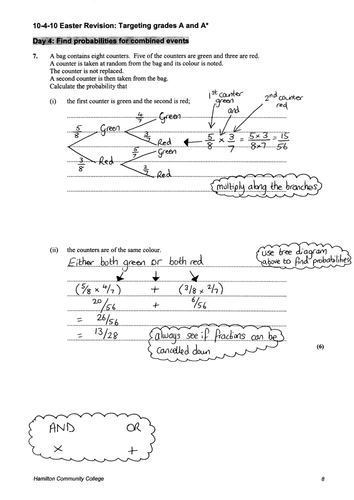 10-4-10 Easter Revision: Targeting grades A and A*
Day 4: Find probabilities for combined events
7. A bag contains eight counters. Five of the counters are green and three are red.
A counter is taken at random from the bag and its colour is noted.
The counter is not replaced.
A second counter is then taken from the bag.
Calculate the probability that
(i) the first counter is green and the second is red;
1st counter green
and
2nd counter red
4/7 Green
5/8 Green
3/7 Red
5/7 Green
3/8 Red
2/7 Red
5/8 × 3/7 = 5×3/8×7 = 15/56
multiply along the branches
(ii) the counters are of the same colour.
use tree diagram
above to find probabilities
Either both green or both red
(5/8 × 4/7) + (3/8 × 2/7)
20/56 + 6/56
= 26/56
= 13/28
always see if fractions can be
cancelled down
(6)
AND OR
× +
Hamilton Community College 8